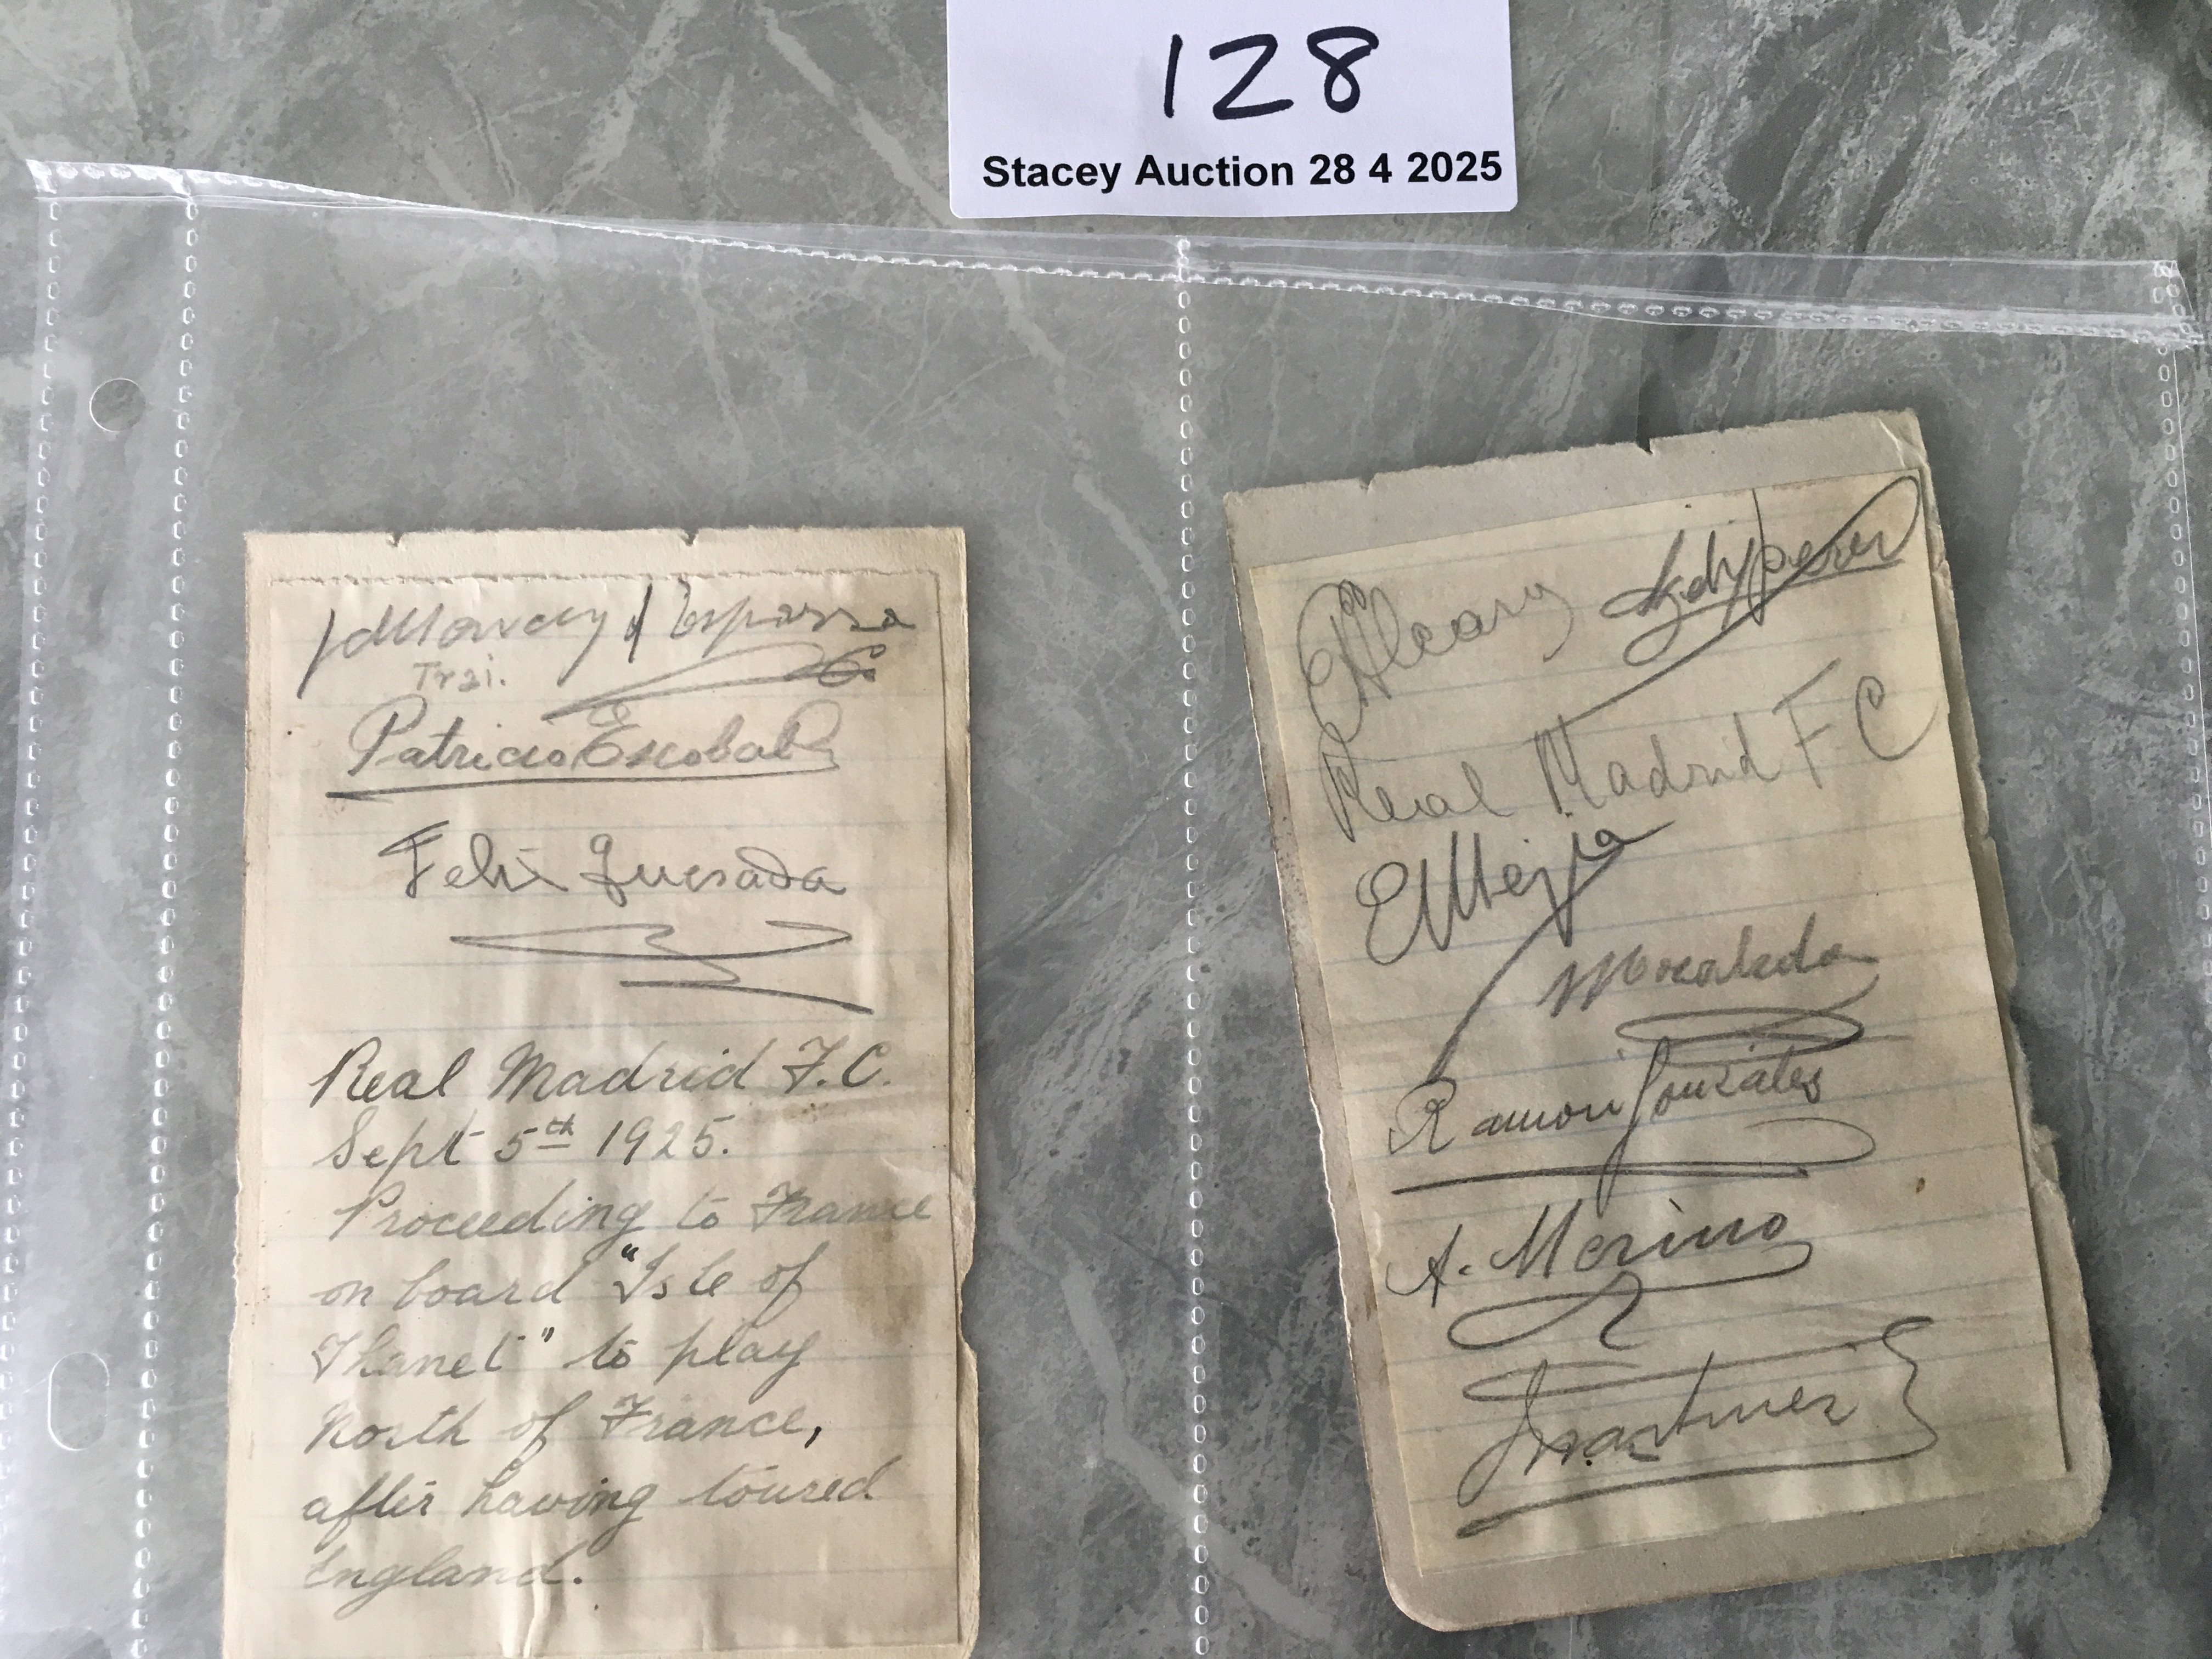 128
Stacey Auction 28 4 2025
Trai.
Patricio Escobal
Felix Quesada
Real Madrid F.C.
Sept 5th 1925.
Proceeding to France
on board "Isle of
Thanet" to play
North of France,
after having toured
England.
Real Madrid F C
E Mejia
Moraleda
Ramon Gonzalez
A. Merino